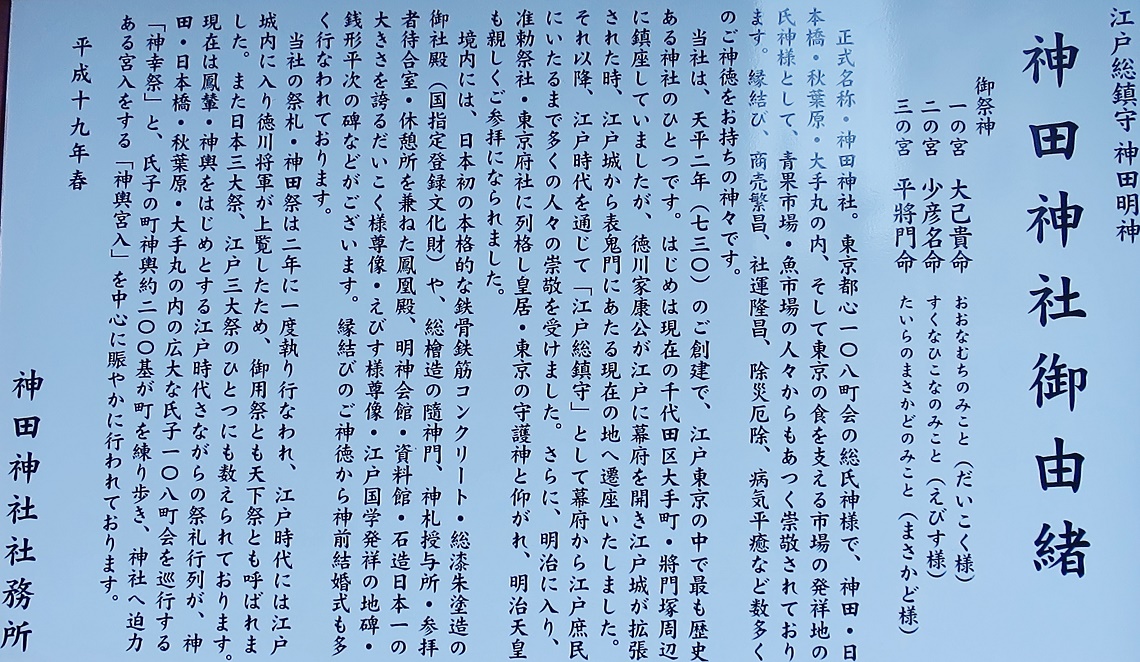 江戸総鎮守 神田明神
神田神社御由緒
御祭神
一の宮 大己貴命 おおなむちのみこと(だいこく様)
二の宮 少彦名命 すくなひこなのみこと(えびす様)
三の宮 平將門命 たいらのまさかどのみこと(まさかど様)
正式名称・神田神社。東京都心一〇八町会の総氏神様で、神田・日
本橋・秋葉原・大手丸の内、そして東京の食を支える市場の発祥地の
氏神様として、青果市場・魚市場の人々からもあつく崇敬されており
ます。縁結び、商売繁昌、社運隆昌、除災厄除、病気平癒など数多く
のご神徳をお持ちの神々です。
当社は、天平二年(七三〇)のご創建で、江戸東京の中で最も歴史
ある神社のひとつです。はじめは現在の千代田区大手町・將門塚周辺
に鎮座していましたが、徳川家康公が江戸に幕府を開き江戸城が拡張
された時、江戸城から表鬼門にあたる現在の地へ遷座いたしました。
それ以降、江戸時代を通じて「江戸総鎮守」として幕府から江戸庶民
にいたるまで多くの人々の崇敬を受けました。さらに、明治に入り、
准勅祭社・東京府社に列格し皇居・東京の守護神と仰がれ、明治天皇
も親しくご参拝になられました。
境内には、日本初の本格的な鉄骨鉄筋コンクリート・総漆朱塗造の
御社殿(国指定登録文化財)や、総檜造の隨神門、神札授与所・参拝
者待合室・休憩所を兼ねた鳳凰殿、明神会館・資料館・石造日本一の
大きさを誇るだいこく様尊像・えびす様尊像・江戸国学発祥の地碑・
銭形平次の碑などがございます。縁結びのご神徳から神前結婚式も多
く行なわれております。
当社の祭札・神田祭は二年に一度執り行なわれ、江戸時代には江戸
城内に入り徳川将軍が上覧したため、御用祭とも天下祭とも呼ばれま
した。また日本三大祭、江戸三大祭のひとつにも数えられております。
現在は鳳輦・神輿をはじめとする江戸時代さながらの祭礼行列が、神
田・日本橋・秋葉原・大手丸の内の広大な氏子一〇八町会を巡行する
「神幸祭」と、氏子の町神輿約二〇〇基が町を練り歩き、神社へ迫力
ある宮入をする「神輿宮入」を中心に賑やかに行われております。
平成十九年春
神田神社社務所